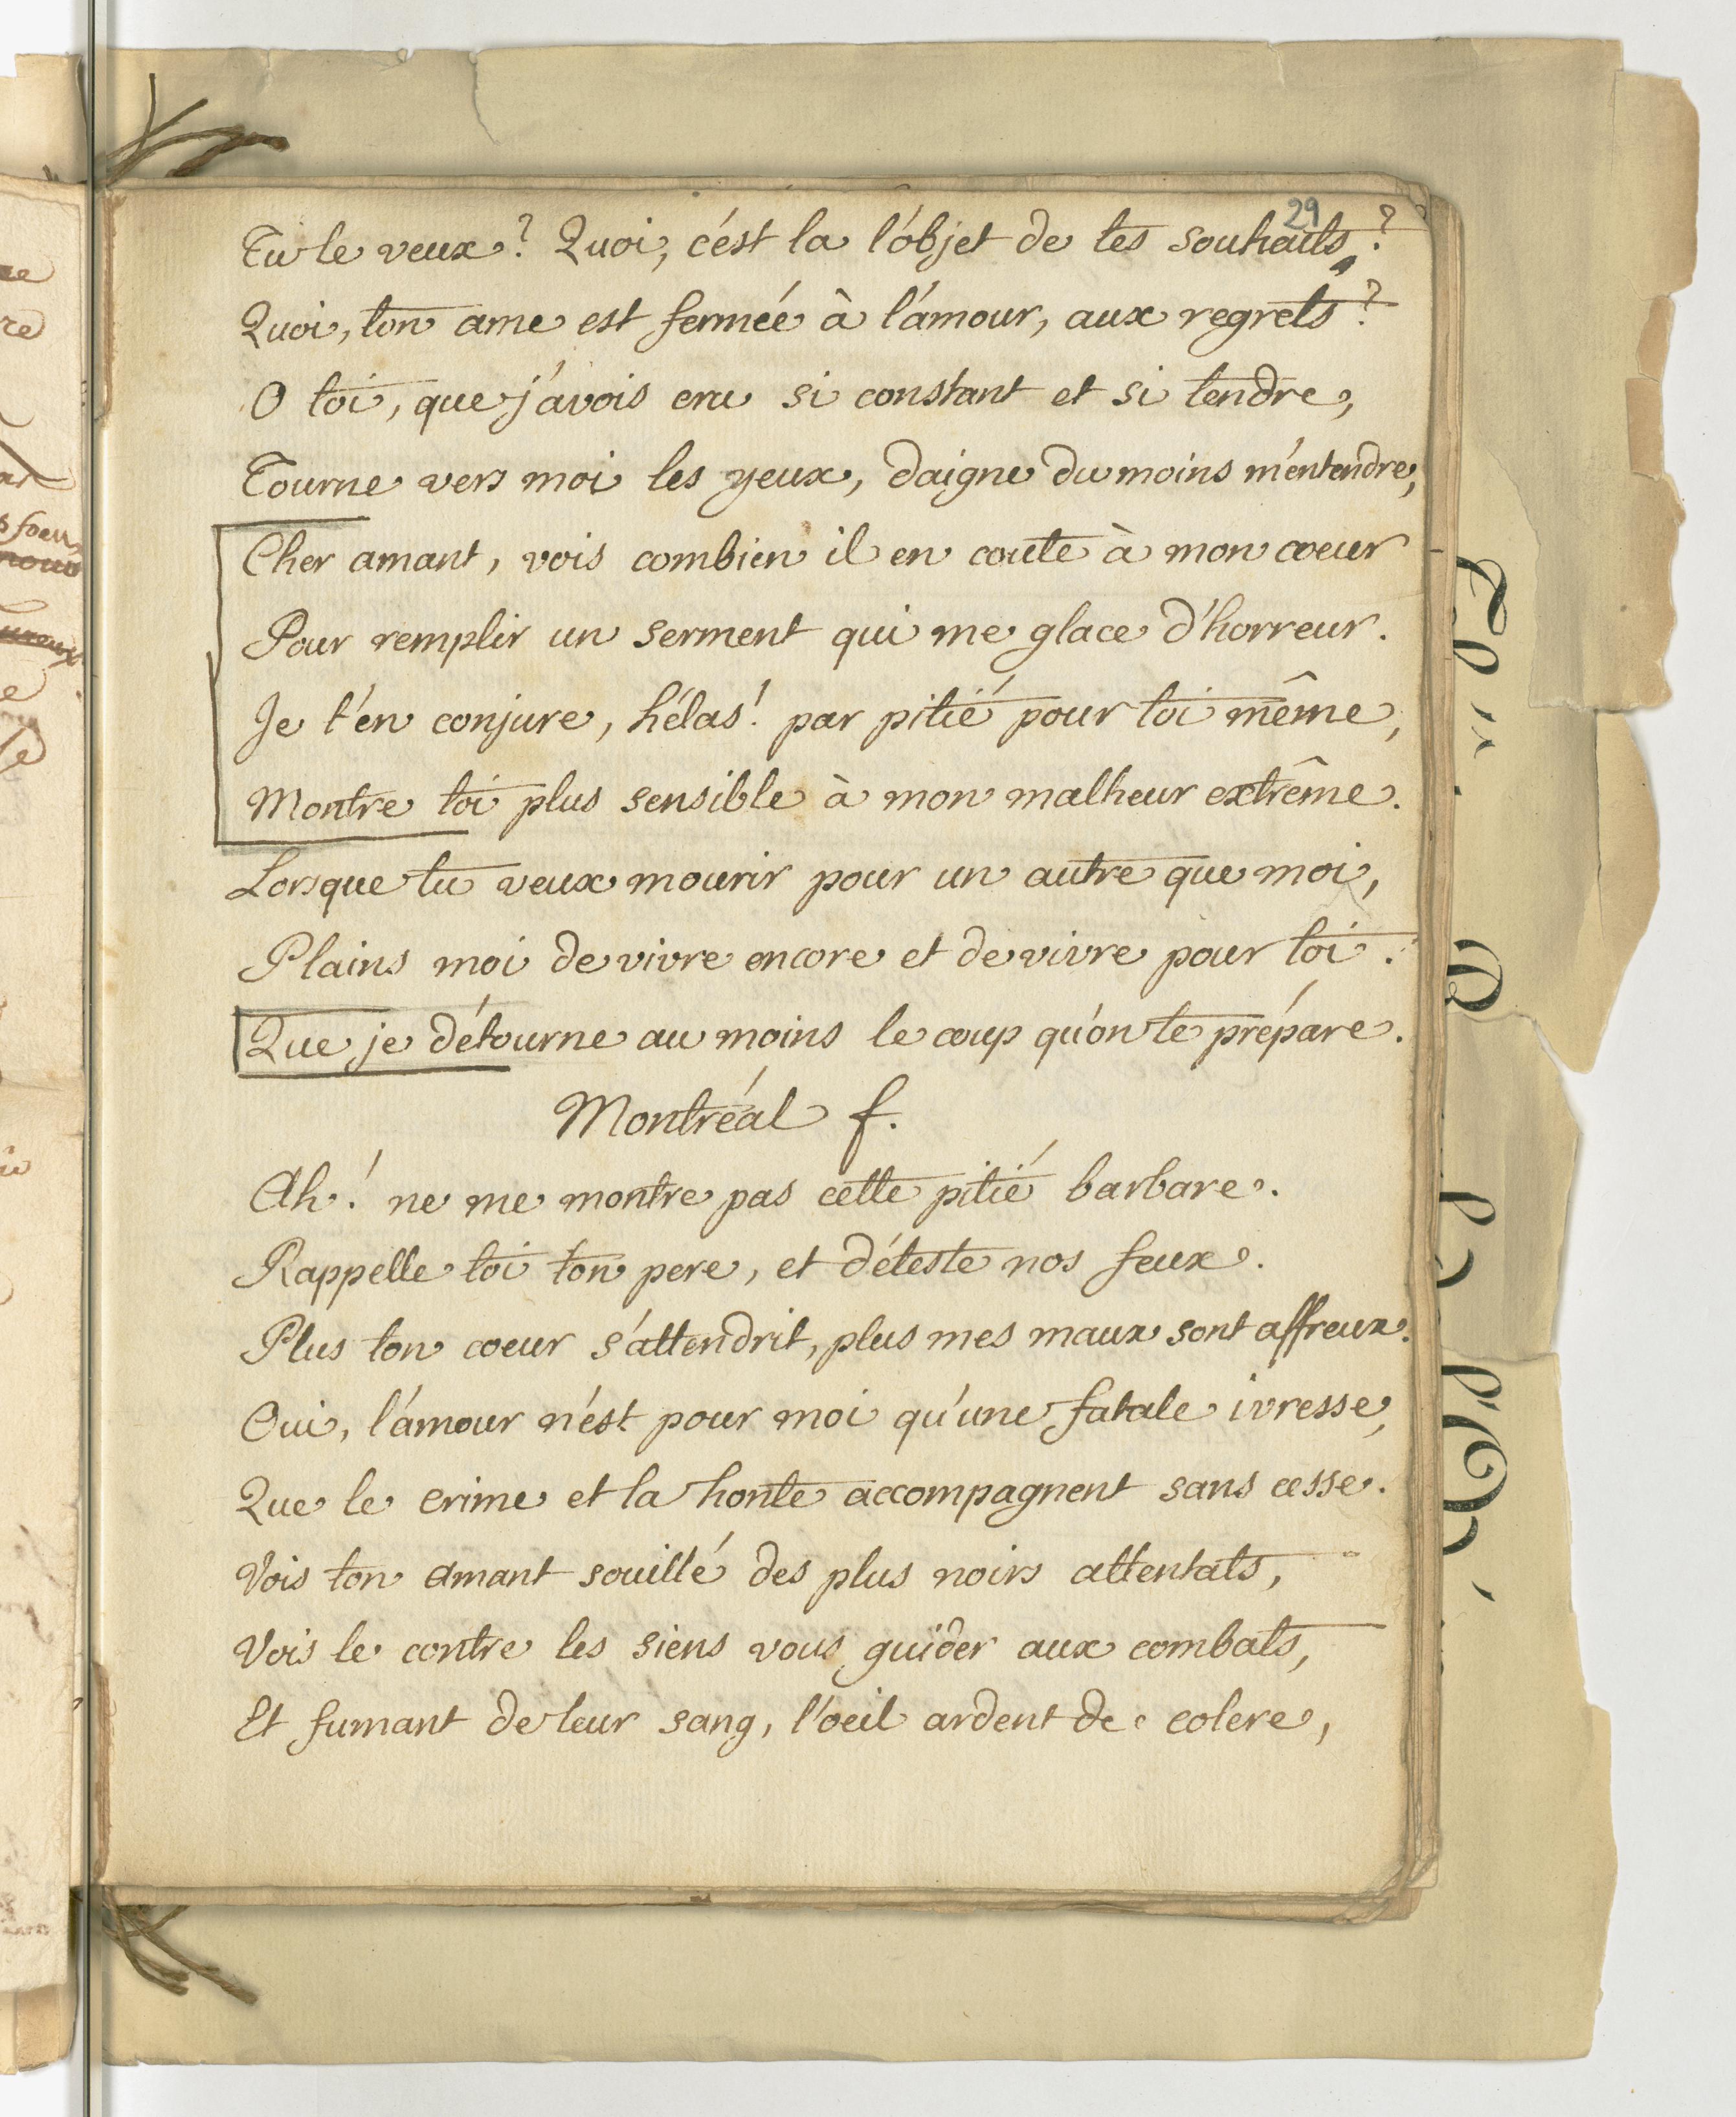 29
Tu le veux? Quoi, c'est la l'objet de tes souhaits?
Quoi, ton ame est fermée à l'amour, aux regrets?
O toi, que j'avois cru si constant et si tendre,
Tourne vers moi les yeux, daigne du moins m'entendre,
Cher amant, vois combien il en coute à mon coeur
Pour remplir un serment qui me glace d'horreur.
Je t'en conjure, hélas! par pitié pour toi même,
Montre toi plus sensible à mon malheur extrême.
Lorsque tu veux mourir pour un autre que moi,
Plains moi de vivre encore et de vivre pour toi.
Que je détourne au moins le coup qu'on te prépare.
Montréal f.
Ah! ne me montre pas cette pitié barbare.
Rappelle toi ton pere, et déteste nos feux.
Plus ton coeur s'attendrit, plus mes maux sont affreux.
Oui, l'amour n'est pour moi qu'une fatale ivresse,
Que le crime et la honte accompagnent sans cesse.
Vois ton amant souillé des plus noirs attentats,
Vois le contre les siens vous guider aux combats,
Et fumant de leur sang, l'oeil ardent de colere,